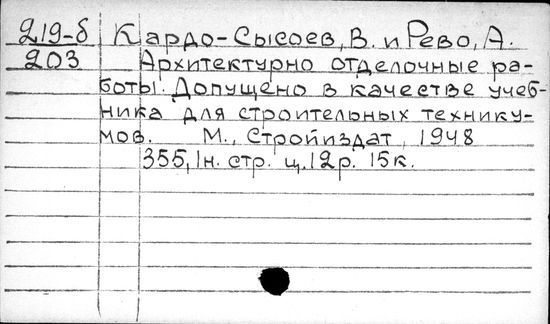 219-б Кардо-Сысоев, В. и Рево, А.
203 Архитектурно отделочные ра-
боты. Допущено в качестве учеб-
ника для строительных технику-
мов. М., Стройиздат, 1948
355, 1н. стр. ц. 12р. 15к.